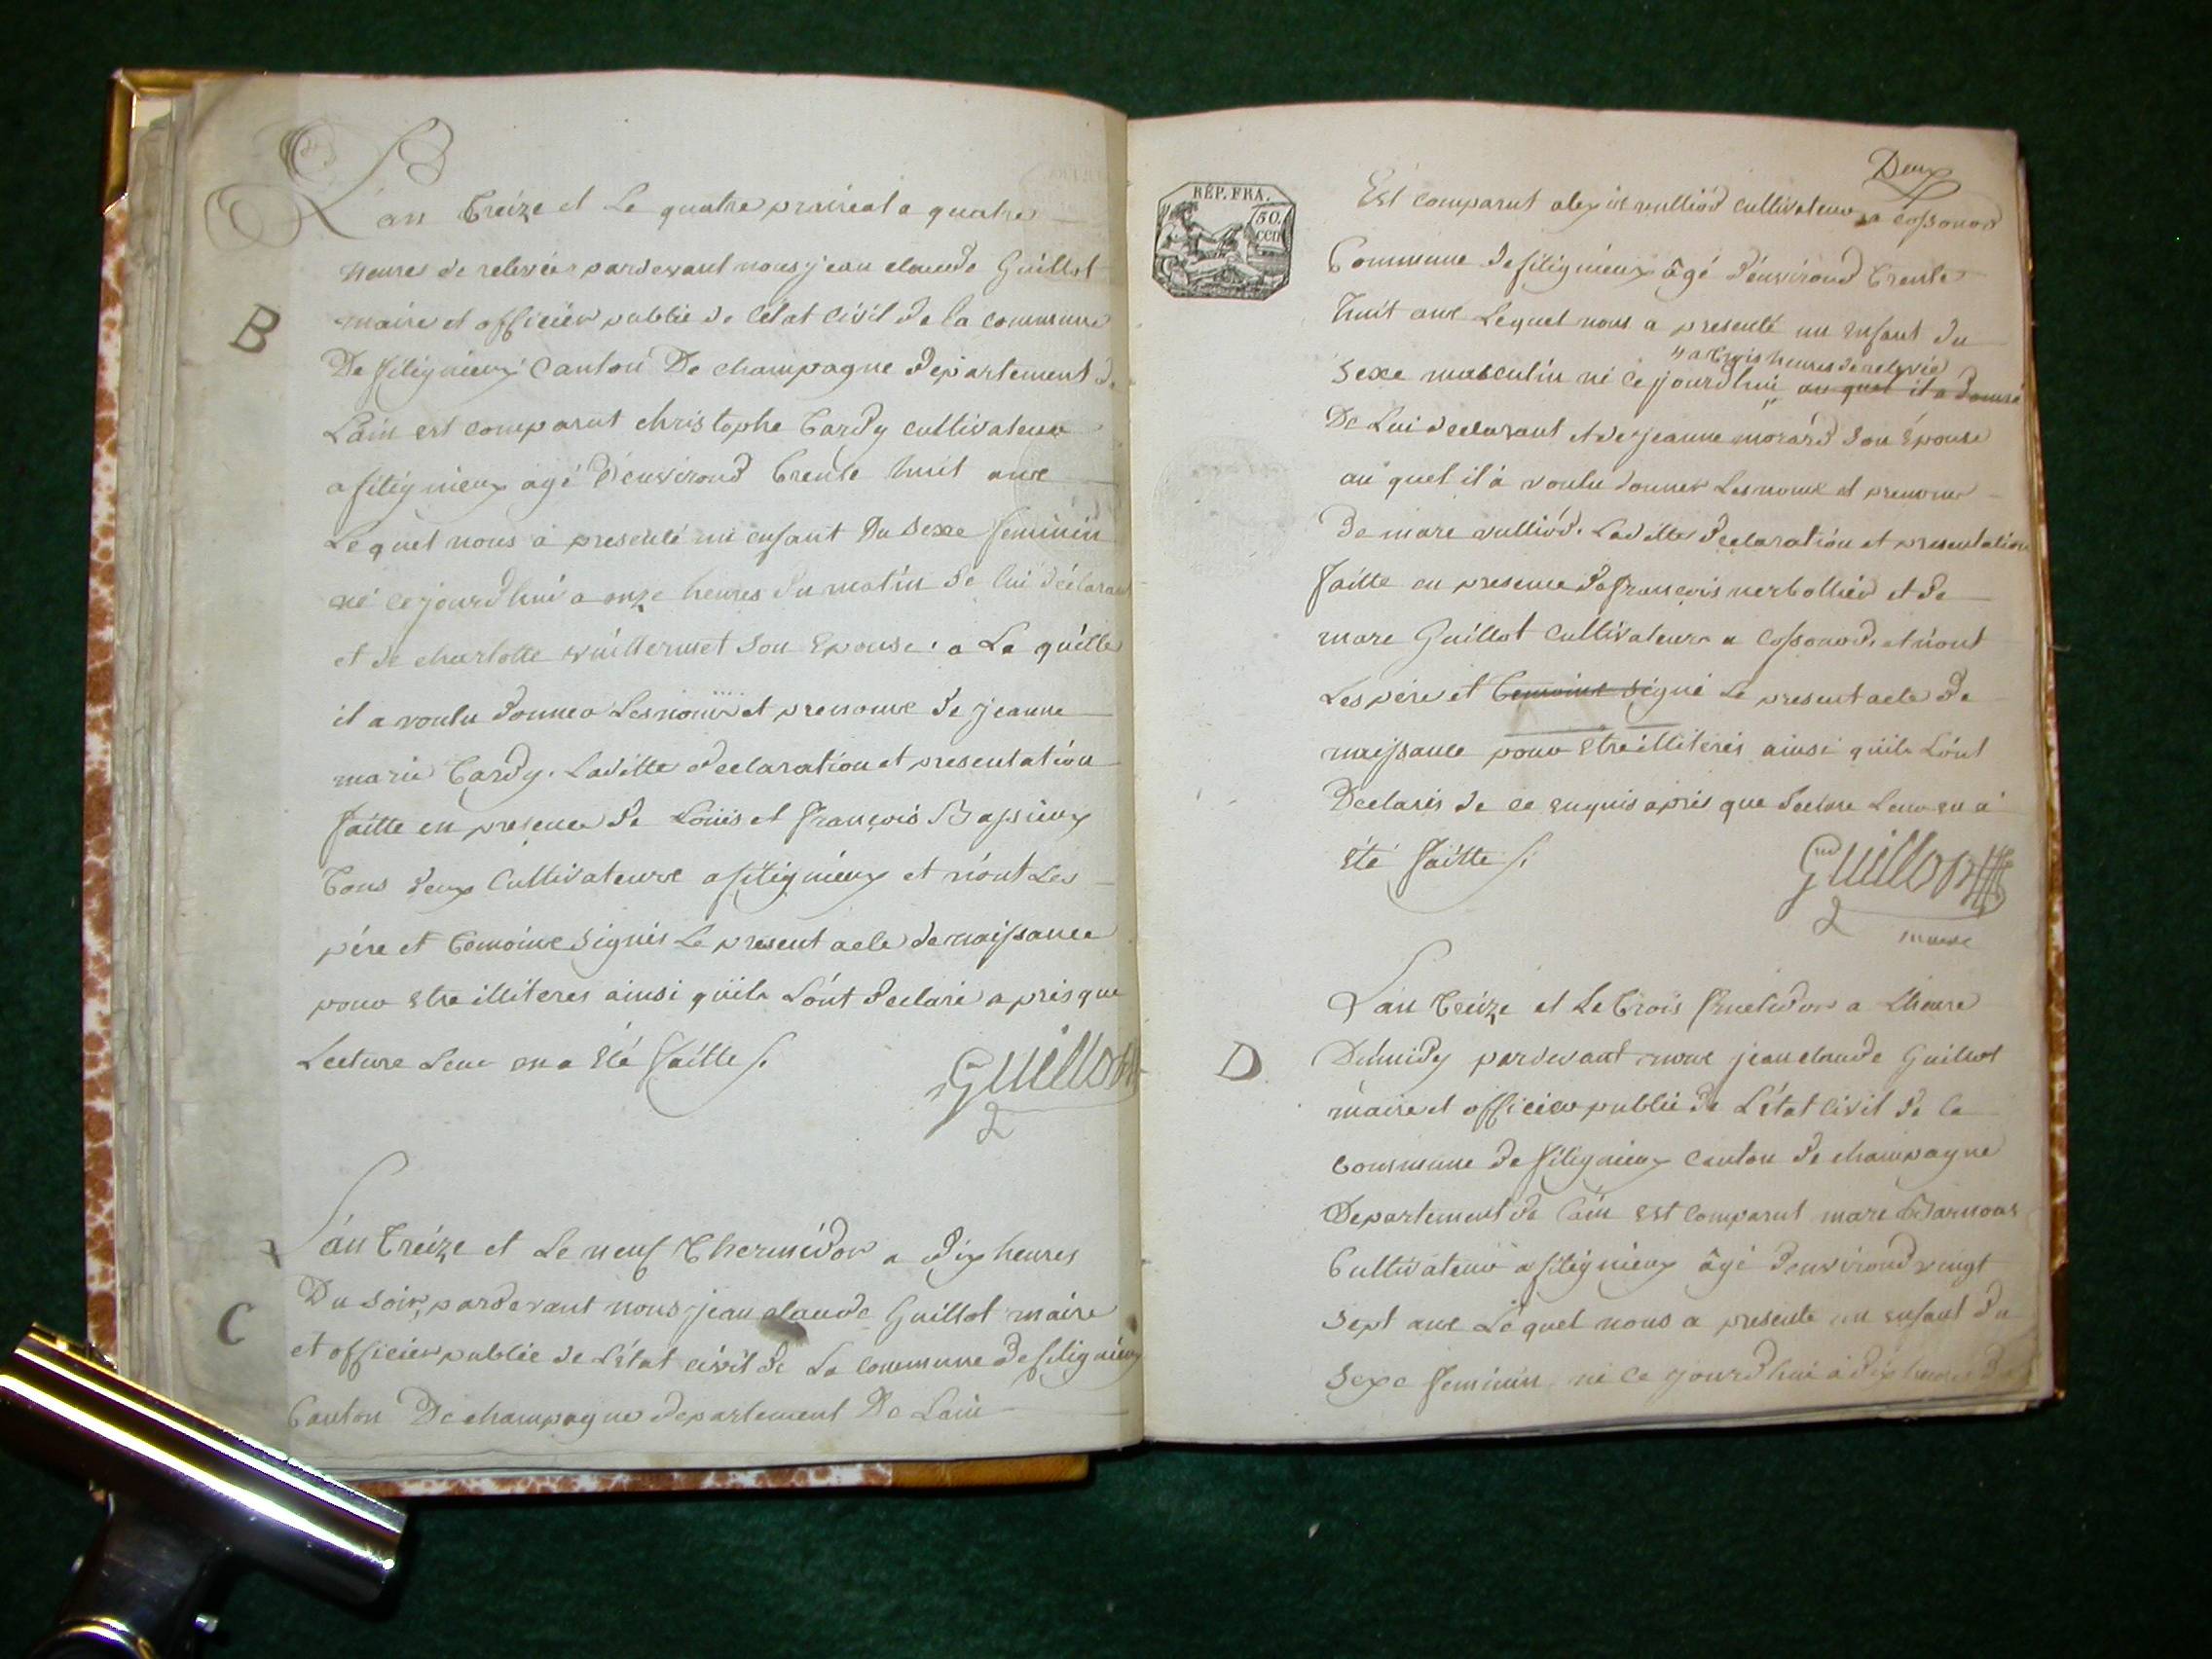 L'an treize et Le quatre prairéal a quatre
heures de relevée pardevant nous jean claude Guillot
B
maire et officier public de L'état civil de la commune
De Silignieux Canton De champagne département de
L'ain est comparut christophe tardy cultivateur
a silignieux agé d'environd trente huit ans
Lequel nous a presenté un enfant Du sexe feminin
né cejourd'hui a onze heures du matin de lui déclarant
et de charlotte vuillermet son Epouse. a La quelle
il a voulu donner Les noms et prenoms de jeanne
marie tardy. Laditte declaration et presentation
faitte en presence de Loüis et françois Bassieux
tous deux Cultivateurs a silignieux et n'ont Les
pére et temoins signés Le present acte de naissance
pour Etre illiteres ainsi qu'ils L'ont declaré apres que
Lecture Leur en a Eté faitte /.
Guillot
2
L'an treize et Le neuf thermidor a dix heures
Du soir, pardevant nous jean claude Guillot maire
C
et officier public de L'état civil de La commune de silignieux
Canton De champagne departement De Lain
Deux
RÉP. FRA.
50.
cen
Est comparut alexis vulliod cultivateur a cossonod
Commune de silignieux âgé d'environd trente
huit ans Lequel nous a presenté un Enfant du
" a trois heures de relevée
Sexe masculin né Cejourd'hui " au quel il a donné
De Lui declarant et de jeanne morard son Epouse
au quel il a voulu donner Les noms et prenoms
De marc vulliod. Laditte declaration et presentation
faitte en presence de françois nerbollier et de
marc Guillot Cultivateurs a Cossonod. et n'ont
Les pére et temoins signé Le present acte de
naissance pour Etre illiterés ainsi qu'ils L'ont
Declarés de ce Enquis aprés que Lecture Leur en a
Eté faitte /.
Guillot
2
maire
L'an treize et Le trois fructidor a Lheure
D
De midy pardevant nous jean claude Guillot
maire et officier public de L'état civil de la
Commune de silignieux Canton de champagne
Departement de l'ain Est Comparut marc
Cultivateur a silignieux âgé d'environd vingt
sept ans Lequel nous a presenté un enfant du
Sexe feminin né Ce jourd'hui a dix heures du